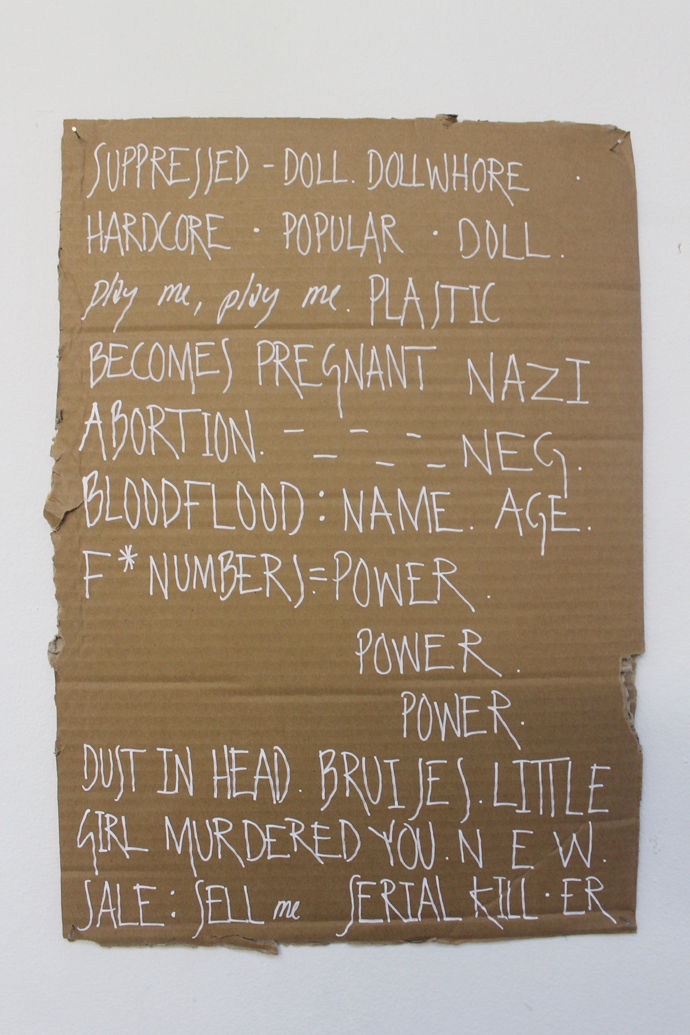 SUPPRESSED - DOLL. DOLLWHORE .
HARDCORE · POPULAR · DOLL.
play me, play me. PLASTIC
BECOMES PREGNANT NAZI
ABORTION. – _ – _ – _ NEG.
BLOODFLOOD: NAME. AGE.
F* NUMBERS!=POWER.
POWER.
POWER.
DUST IN HEAD. BRUISES. LITTLE
GIRL MURDERED YOU. N E W.
SALE: SELL me SERIAL KILL·ER